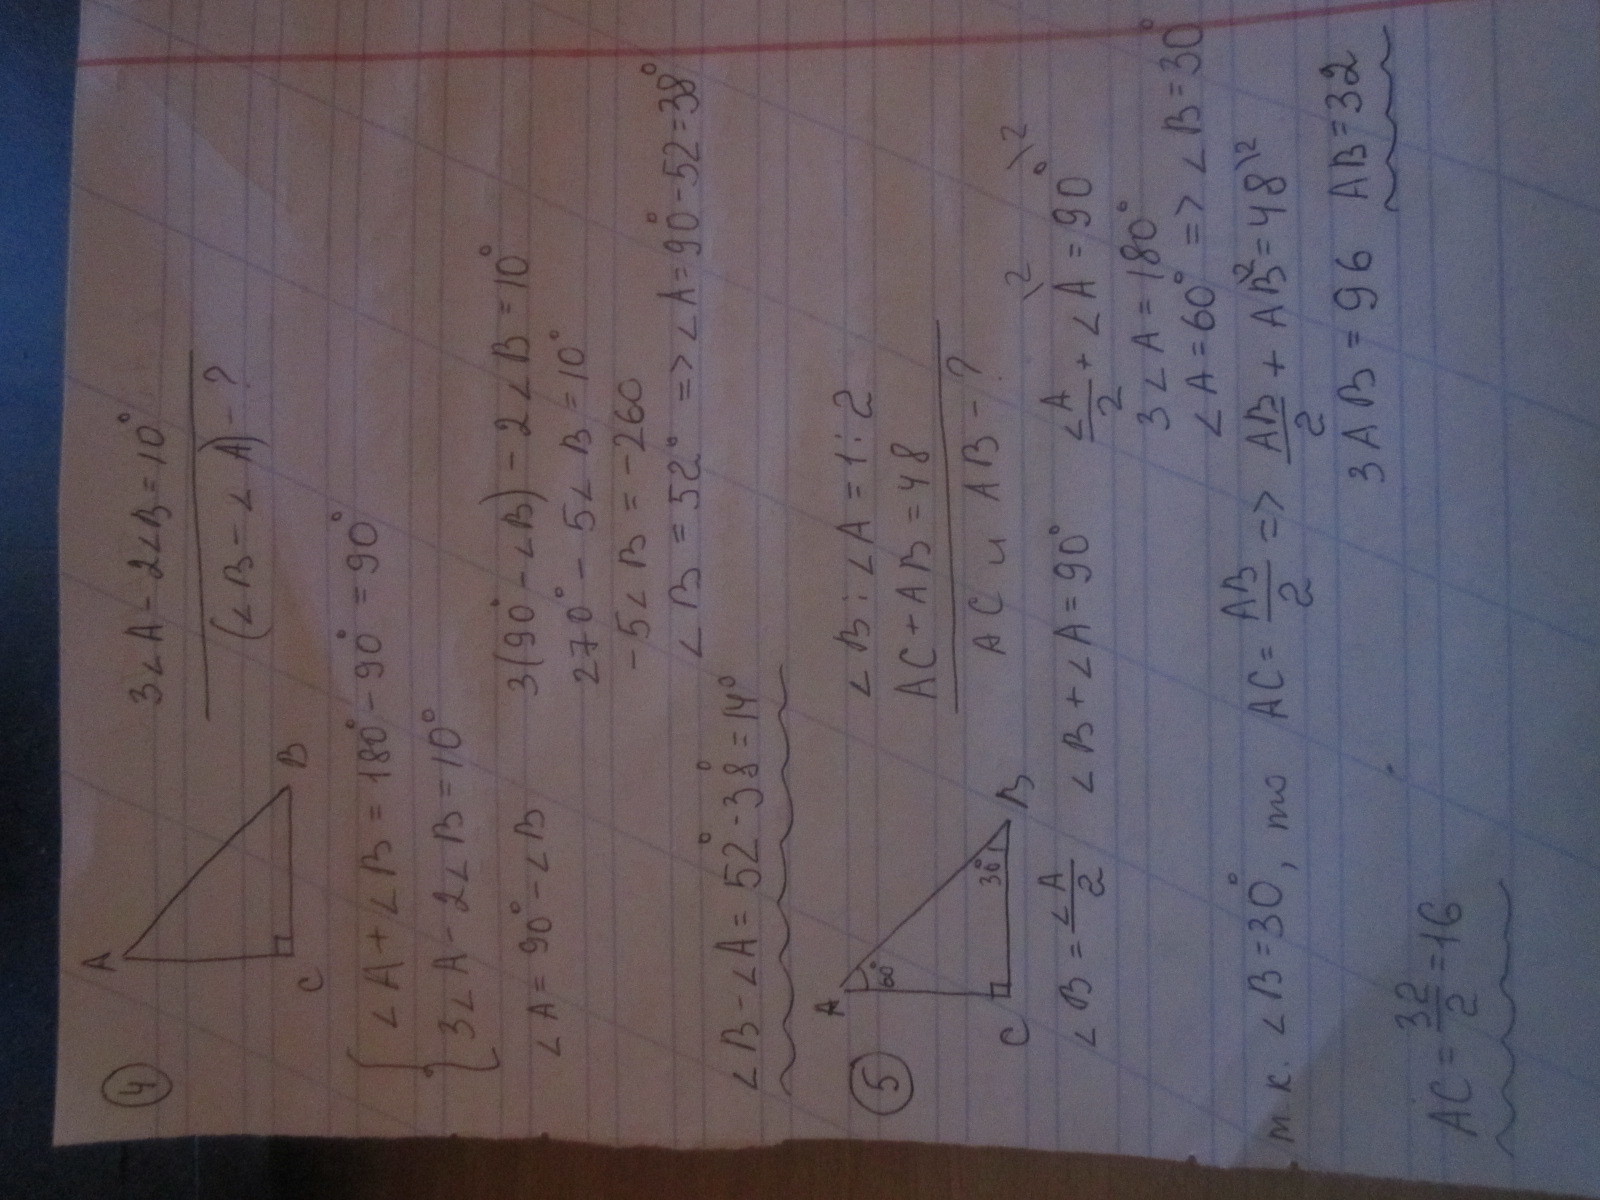 4
3∠A-2∠B=10°
(∠B-∠A)-?
A
C
B
∠A+∠B=180°-90°=90°
3∠A-2∠B=10°
∠A=90°-∠B
3(90°-∠B)-2∠B=10°
270°-5∠B=10°
-5∠B=-260
∠B=52° => ∠A=90°-52=38°
∠B-∠A=52°-38°=14°
5
∠B:∠A=1:2
AC+AB=48
AC и AB-?
A
60°
30°
C
B
∠B=∠A/2
∠B+∠A=90°
∠A/2\2+∠A\2=90°\2
3∠A=180°
∠A=60° => ∠B=30°
т.к. ∠B=30°, то AC=AB/2 => AB/2+AB\2=48\2
3AB=96 AB=32
AC=32/2=16